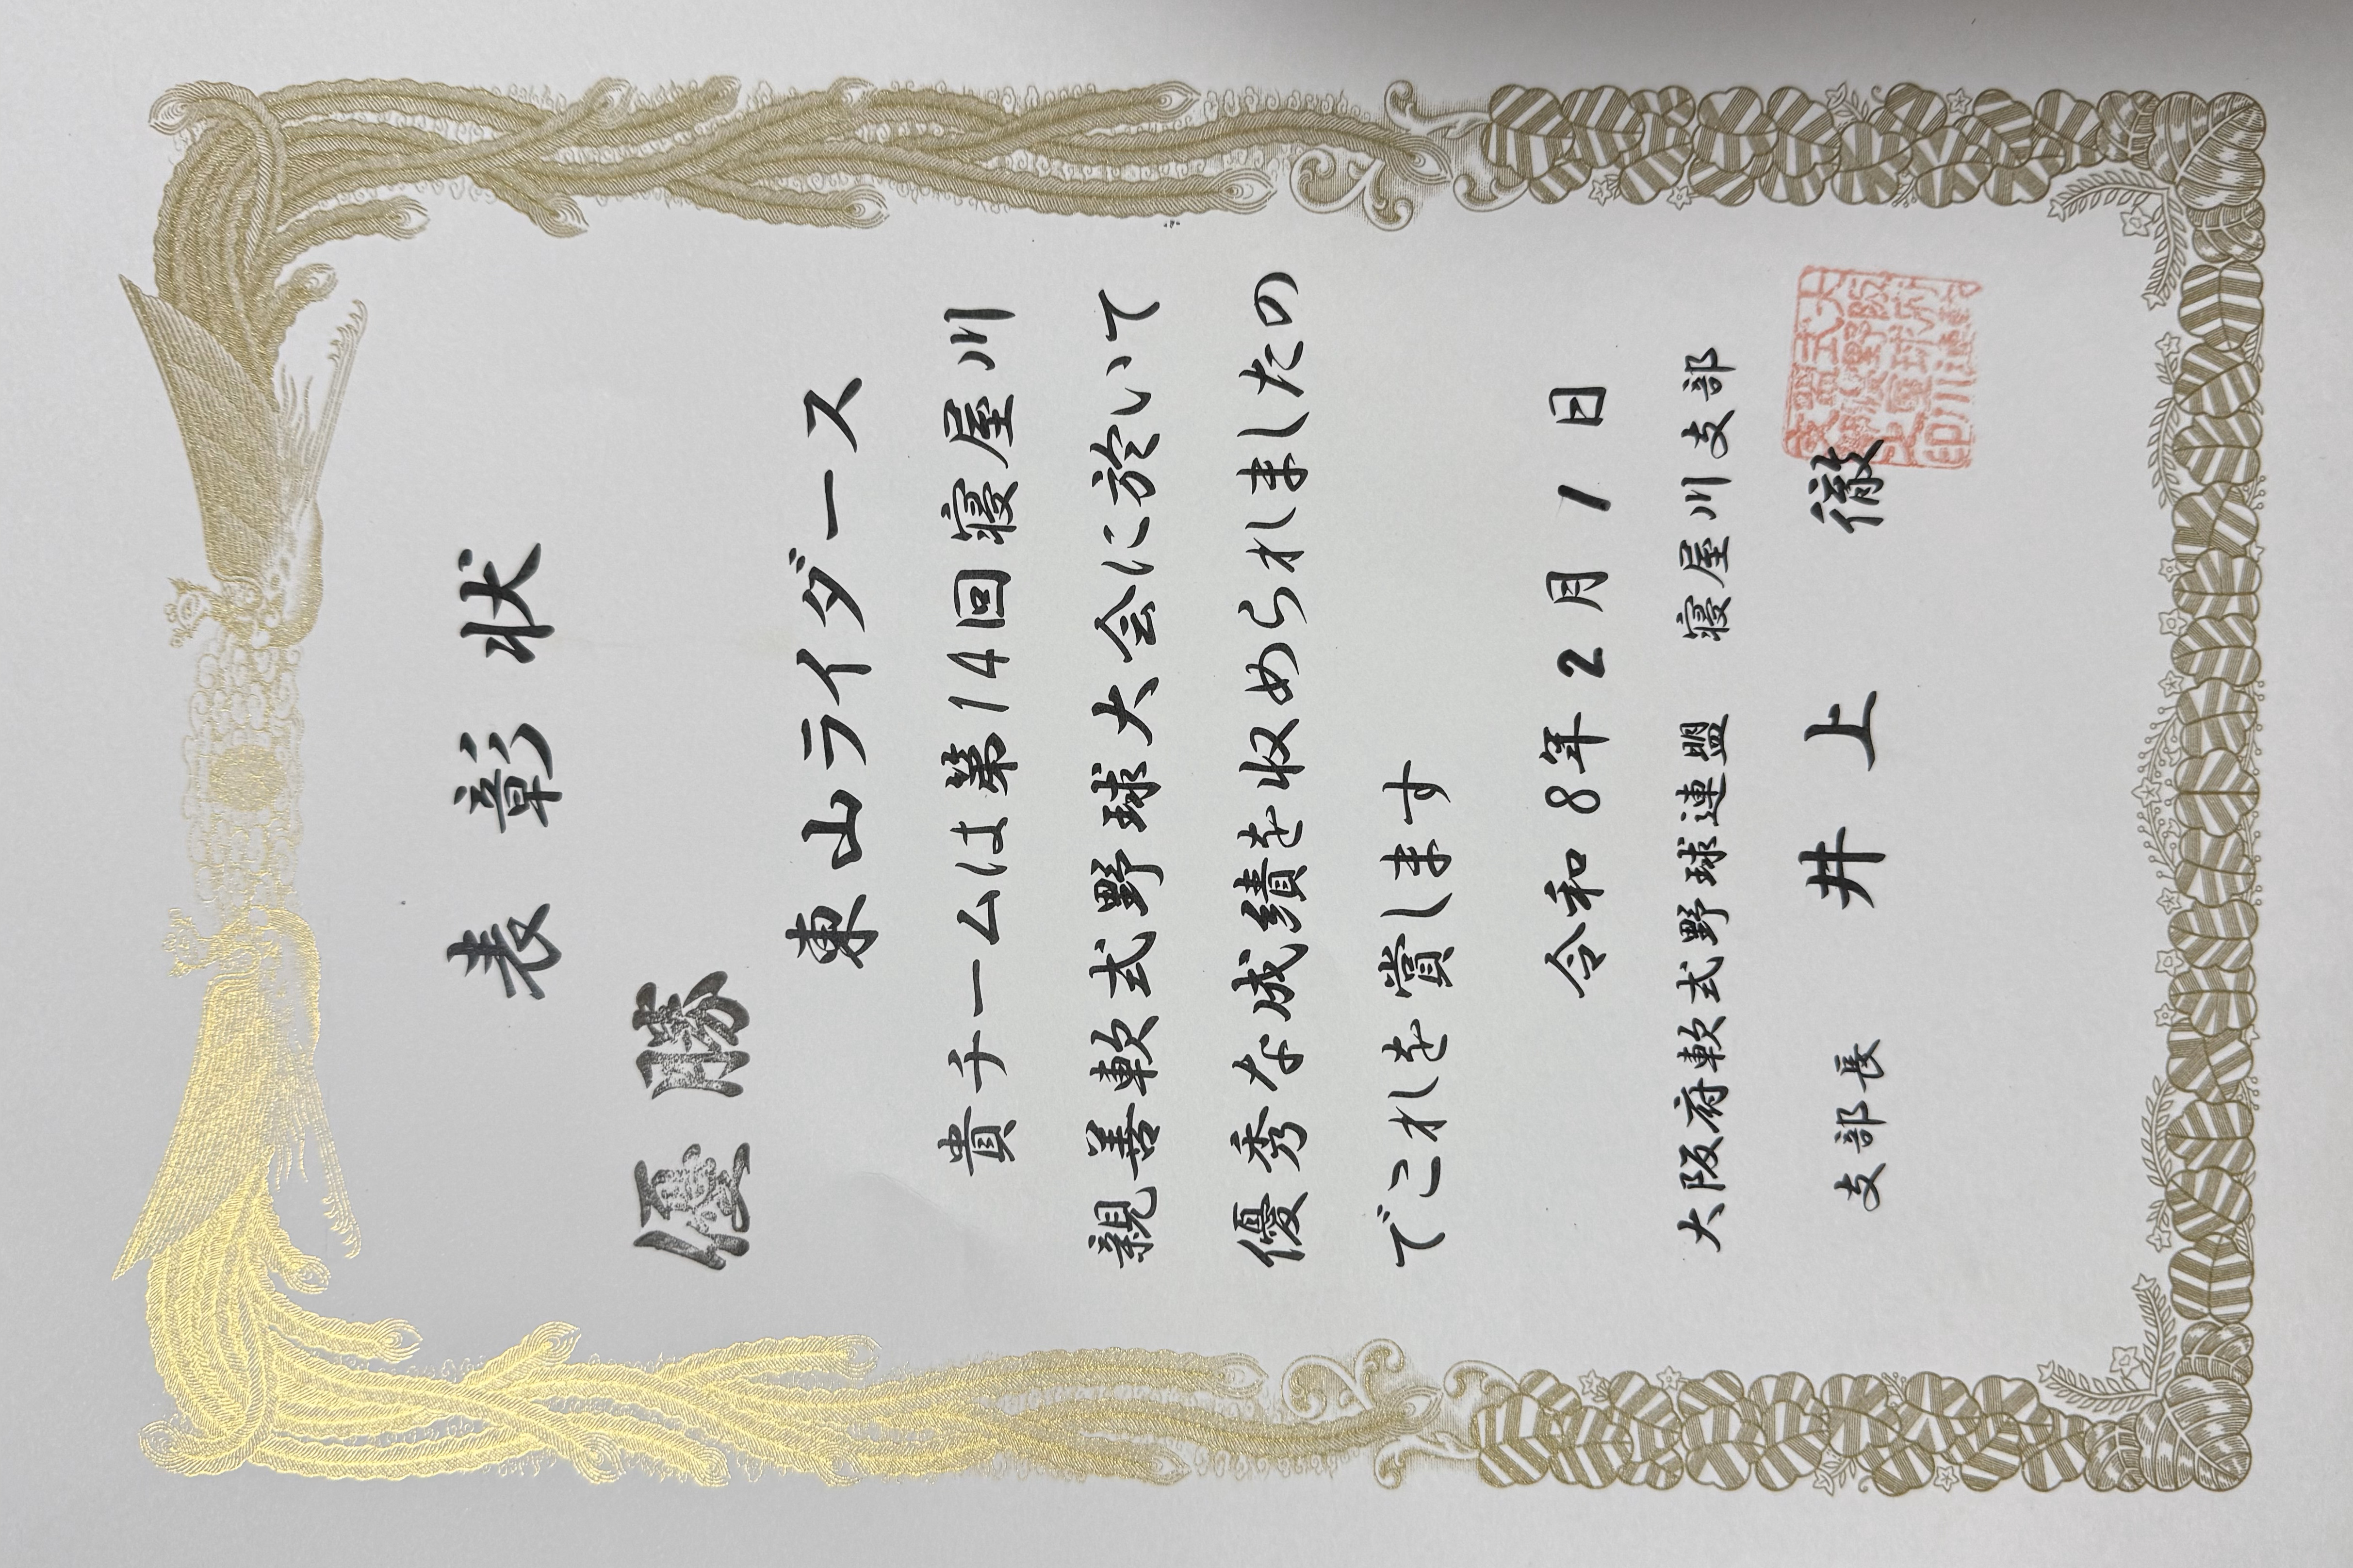 表彰状
優勝
東山ライダース
貴チームは第14回寝屋川
親善軟式野球大会に於いて
優秀な成績を収められましたの
でこれを賞します
令和8年2月1日
大阪府軟式野球連盟 寝屋川支部
支部長 井上 徹